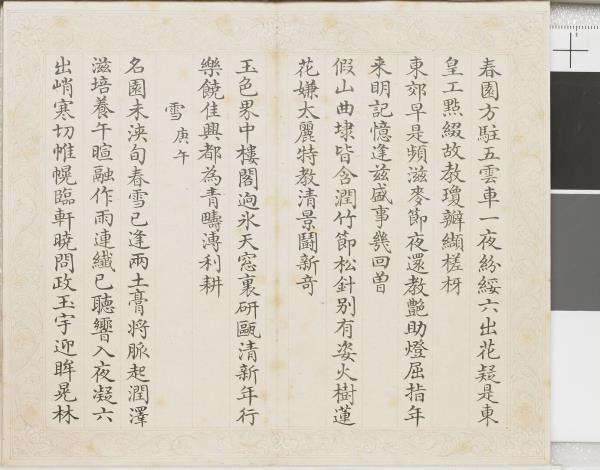 春園方駐五雲車一夜紛綏六出花疑是東
皇工點綴故教瓊瓣纈槎枒
東郊早是頻滋麥節夜還教艷助燈屈指年
来明記憶逢兹盛事幾回曽
假山曲埭皆含潤竹節松針别有姿火樹蓮
花嫌太麗特教清景鬬新奇
玉色界中樓閣逈氷天窓裏硏甌清新年行
樂饒佳興都為青疇溥利耕
雪庚午
名園未浹旬春雪已逢兩土膏将脈起潤澤
滋培養午暄融作雨連纖已聽響入夜凝六
出峭寒切帷幌臨軒曉問政玉宇迎眸晃林